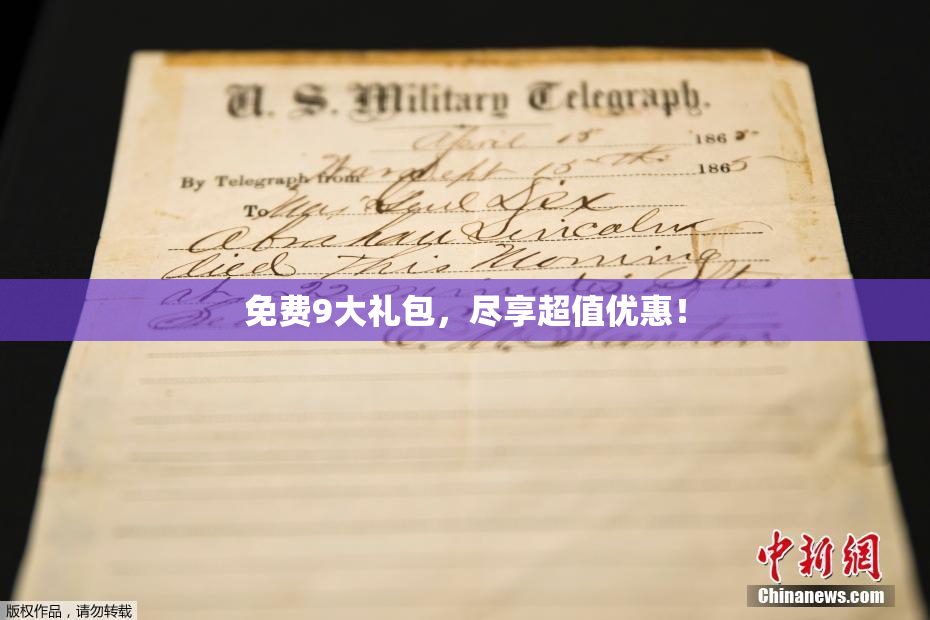 U. S. Military Telegraph.
April 15 1865
By Telegraph from War Dept 15th 1865
To Maj Genl Dix
Abraham Lincoln
died This Morning
at 22 minutes after
免费9大礼包，尽享超值优惠！
中新網
Chinanews.com
版权作品，请勿转载